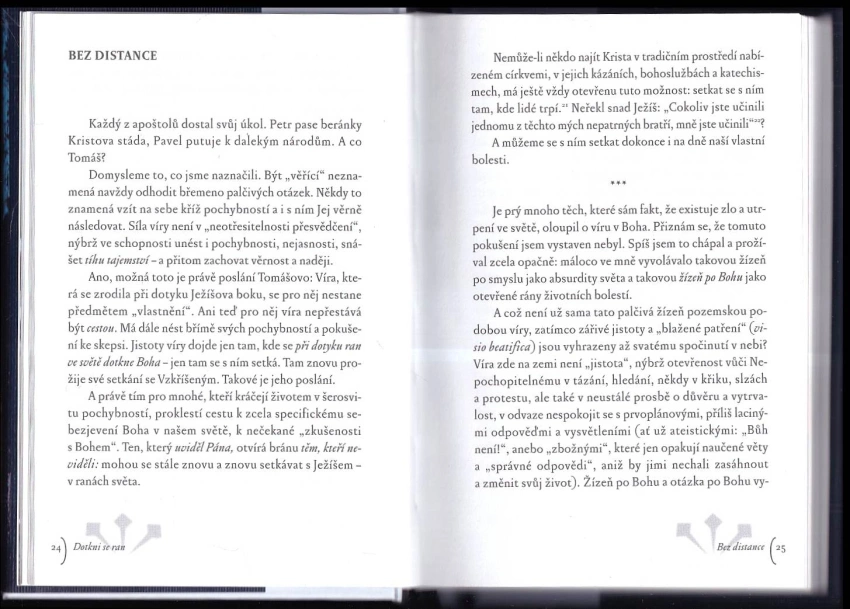 BEZ DISTANCE
Každý z apoštolů dostal svůj úkol. Petr pase beránky
Kristova stáda, Pavel putuje k dalekým národům. A co
Tomáš?
Domysleme to, co jsme naznačili. Být „věřící“ nezna-
mená navždy odhodit břemeno palčivých otázek. Někdy to
znamená vzít na sebe kříž pochybností a i s ním Jej věrně
následovat. Síla víry není v „neotřesitelnosti přesvědčení“,
nýbrž ve schopnosti unést i pochybnosti, nejasnosti, sná-
šet tíhu tajemství – a přitom zachovat věrnost a naději.
Ano, možná toto je právě poslání Tomášovo: Víra, kte-
rá se zrodila při dotyku Ježíšova boku, se pro něj nestane
předmětem „vlastnění“. Ani teď pro něj víra nepřestává
být cestou. Má dále nést břímě svých pochybností a pokuše-
ní ke skepsi. Jistoty víry dojde jen tam, kde se při dotyku ran
ve světě dotkne Boha – jen tam se s ním setká. Tam znovu pro-
žije své setkání se Vzkříšeným. Takové je jeho poslání.
A právě tím pro mnohé, kteří kráčejí životem v šerosvi-
tu pochybností, proklestí cestu k zcela specifickému se-
bezjevení Boha v našem světě, k nečekané „zkušenosti
s Bohem“. Ten, který uviděl Pána, otvírá bránu těm, kteří ne-
viděli: mohou se stále znovu a znovu setkávat s Ježíšem –
v ranách světa.
24 Dotkni se ran
Nemůže-li někdo najít Krista v tradičním prostředí nabí-
zeném církvemi, v jejich kázáních, bohoslužbách a katechis-
mech, má ještě vždy otevřenu tuto možnost: setkat se s ním
tam, kde lidé trpí.²¹ Neřekl snad Ježíš: „Cokoliv jste učinili
jednomu z těchto mých nepatrných bratří, mně jste učinili“²²?
A můžeme se s ním setkat dokonce i na dně naší vlastní
bolesti.
***
Je prý mnoho těch, které sám fakt, že existuje zlo a utr-
pení ve světě, oloupil o víru v Boha. Přiznám se, že tomuto
pokušení jsem vystaven nebyl. Spíš jsem to chápal a proží-
val zcela opačně: máloco ve mně vyvolávalo takovou žízeň
po smyslu jako absurdity světa a takovou žízeň po Bohu jako
otevřené rány životních bolestí.
A což není už sama tato palčivá žízeň pozemskou po-
dobou víry, zatímco zářivé jistoty a „blažené patření“ (vi-
sio beatifica) jsou vyhrazeny až svatému spočinutí v nebi?
Víra zde na zemi není „jistota“, nýbrž otevřenost vůči Ne-
pochopitelnému v tázání, hledání, někdy v křiku, slzách
a protestu, ale také v neustálé prosbě o důvěru a vytrva-
lost, v odvaze nespokojit se s prvoplánovými, příliš laciný-
mi odpověďmi a vysvětleními (ať už ateistickými: „Bůh
není!“, anebo „zbožnými“, které jen opakují naučené věty
a „správné odpovědi“, aniž by jimi nechali zasáhnout
a změnit svůj život). Žízeň po Bohu a otázka po Bohu vy-
Bez distance 25